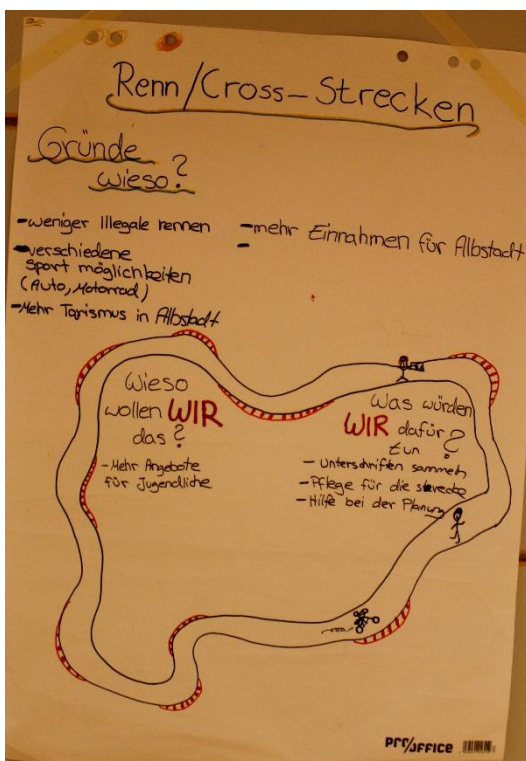 Renn/Cross-Strecken
Gründe
wieso?
-weniger Illegale rennen
-verschiedene
sport möglichkeiten
(Auto, Motorrad)
-Mehr Torismus in Albstadt
-mehr Einnahmen für Albstadt
-
Wieso
wollen WIR
das?
- Mehr Angebote
für Jugendliche
Was würden
WIR dafür
tun?
- Unterschriften sammeln
- Pflege für die strecke
- Hilfe bei der Planung
PRO/OFFICE